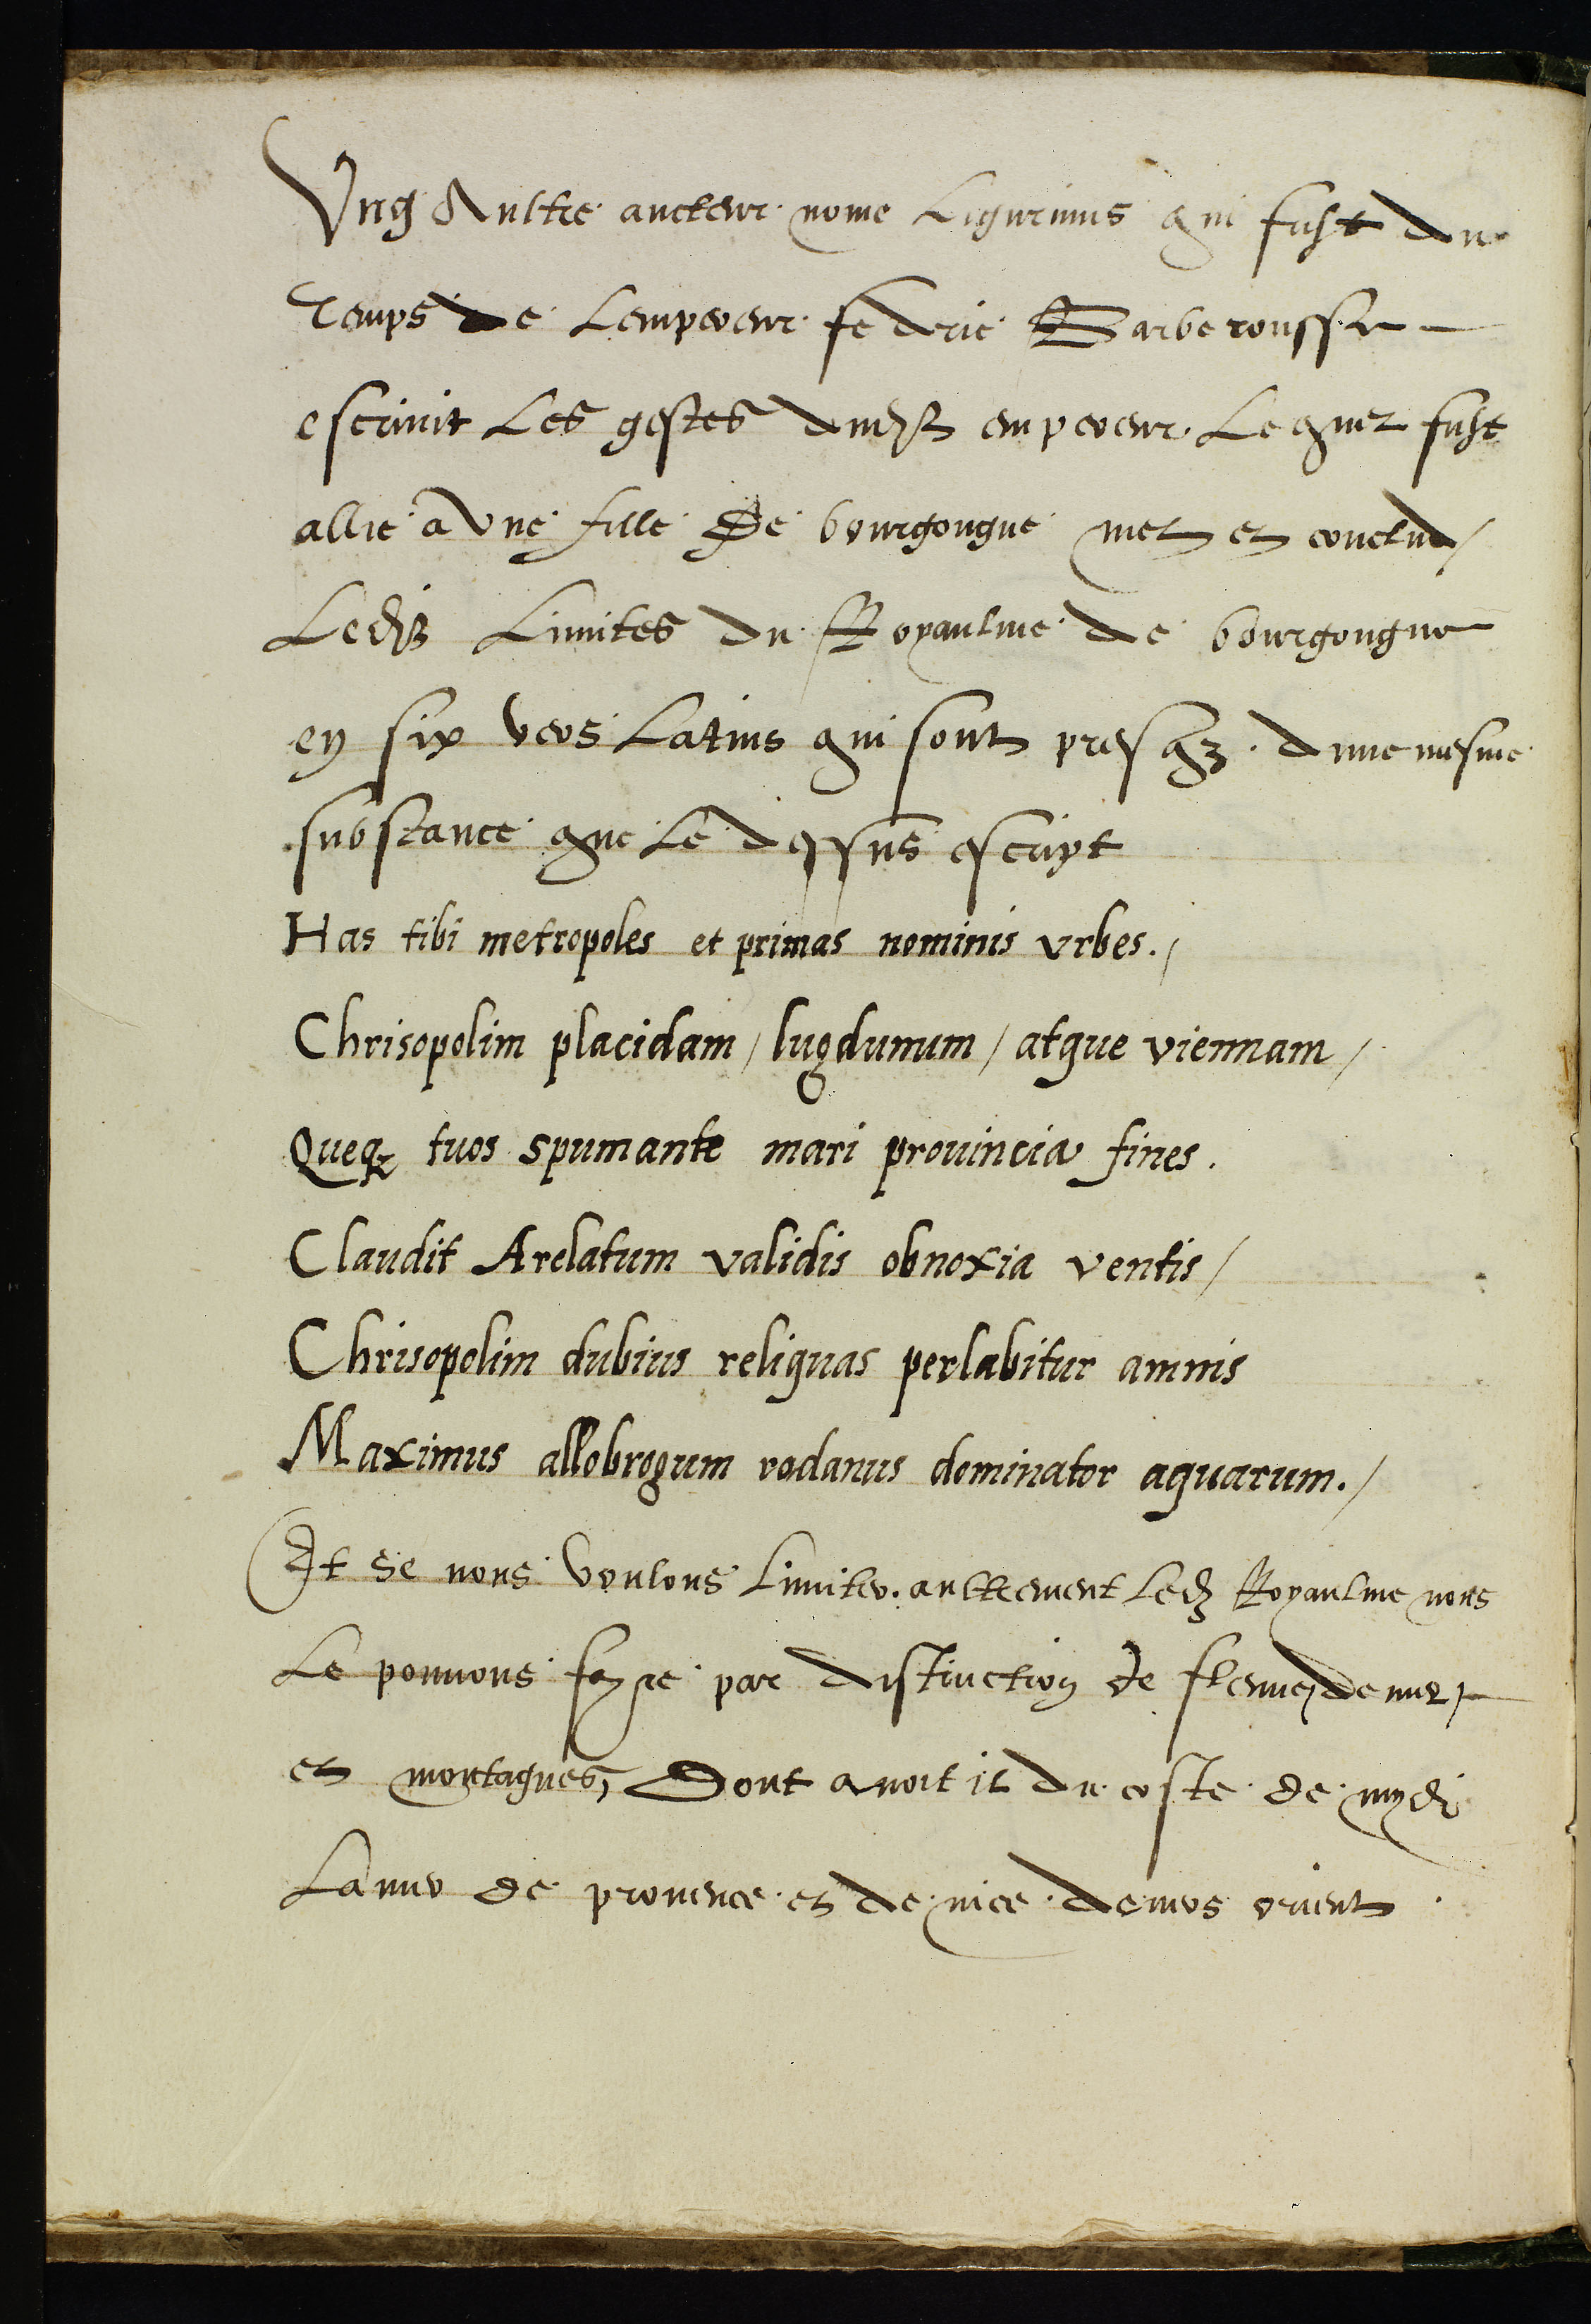 Vng Aultre aucteur nome Ligurinus qui fust du
temps de Lempereur fedric Barberousse
escriuit Les gestes dudit empereur Lequel fust
allie a vne fille de bourgongne met et conclud /
Lesdiz Limites du Royaulme de bourgongne
en six vers Latins qui sont presq3 dune mesme
substance que Le dessus escript
Has tibi metropoles et primas nominis vrbes. /
Chrisopolim placidam / lugdunum / atque viennam /
Queq3 tuos spumante mari prouincia fines .
Claudit Arelatum validis obnoxia ventis /
Chrisopolim dubius reliquas perlabitur amnis
Maximus allobrogum rodanus dominator aquarum. /
Et se nous voulons Limiter aultrement Led3 Royaulme nous
Le pouuons fayre par distinction de fleuue, de mer,
et montagnes, Dont auoit il du coste de mydi
La mer de prouence et de nice deuers orient .